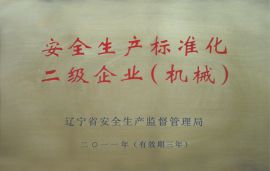 安全生产标准化
二级企业(机械)
辽宁省安全生产监督管理局
二〇一一年(有效期三年)